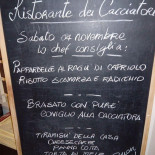 Ristorante dei Cacciatori
Sabato 04 novembre
lo chef consiglia!
Pappardelle al ragù di capriolo
Risotto scamorza e radicchio
Brasato con purè
Coniglio alla cacciatora
Tiramisù della casa
Cheesecake
Panna cotta
Torta di mele